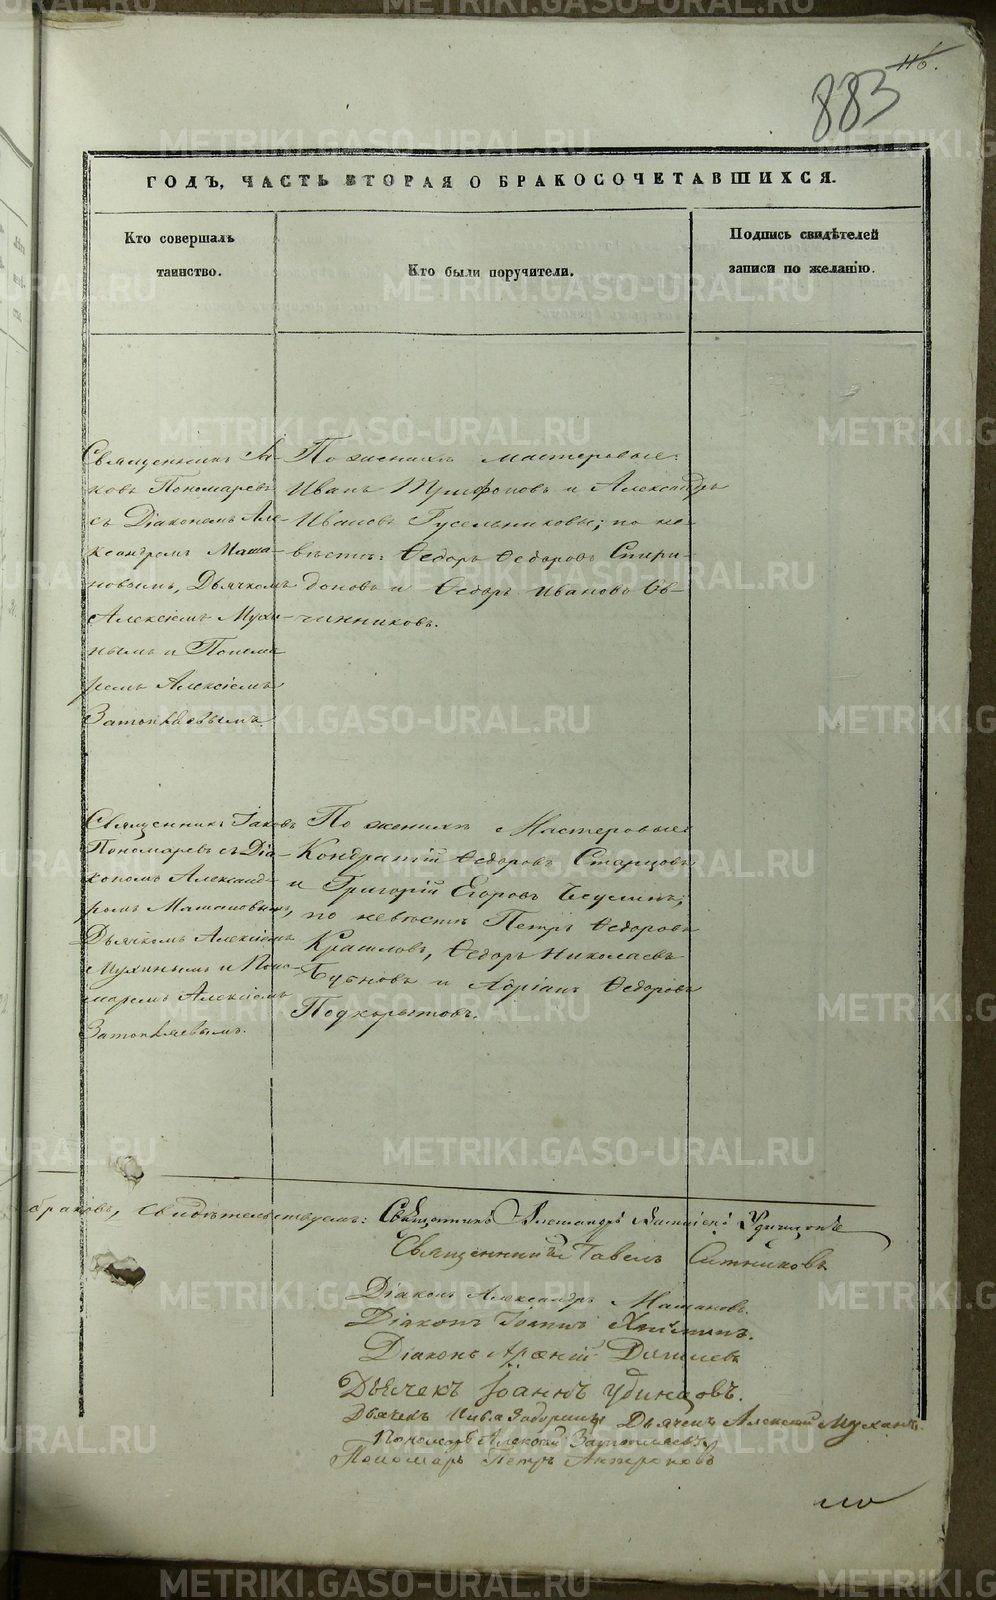 116.
883
ГОДЪ, ЧАСТЬ ВТОРАЯ О БРАКОСОЧЕТАВШИХСЯ.
Кто совершалъ
таинство.
Кто были поручители.
Подпись свидѣтелей
записи по желанію.
Священникъ Іа-
ковъ Пономаревъ
съ Діакономъ Але-
ксандромъ Маша-
новымъ, Дьячкомъ
Алексіемъ Мухи-
нымъ и Понома
ремъ Алексіемъ
Затопляевымъ.
По женихѣ мастеровые:
Иванъ Трифоновъ и Александръ
Ивановъ Гусельниковы; по не-
вѣстѣ: Ѳедоръ Ѳедоровъ Спири-
доновъ и Ѳедоръ Ивановъ Ов-
чинниковъ.
Священникъ Іаковъ
Пономаревъ съ Діа-
кономъ Александ-
ромъ Машановымъ,
Дьячкомъ Алексіемъ
Мухинымъ и Поно-
маремъ Алексіемъ
Затопляевымъ.
По женихѣ Мастеровые
Кондратій Ѳедоровъ Старцовъ
и Григорій Егоровъ
по невѣстѣ Петръ Ѳедоровъ
Крашловъ, Ѳедоръ Николаевъ
Бубновъ и Адріанъ Ѳедоровъ
Подкорытовъ.
браковъ, свидѣтельствуемъ: Священникъ Александръ
Священникъ Павелъ Ситниковъ
Діаконъ Александръ Машановъ.
Діаконъ Іоаннъ
Діаконъ Арсеній Дягилевъ
Дьячекъ Іоаннъ Удинцовъ.
Дьячекъ Дьячекъ Алексій Мухинъ.
Пономарь Алексій Затопляевъ
Пономарь Петръ Антроповъ
METRIKI.GASO-URAL.RU